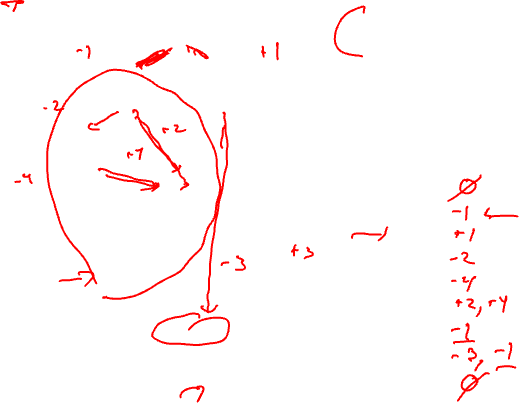 -1
+1
C
-2
+2
+4
-4
-3
+3
∅
-1
+1
-2
-4
+2, +4
-1
-3, -1
∅